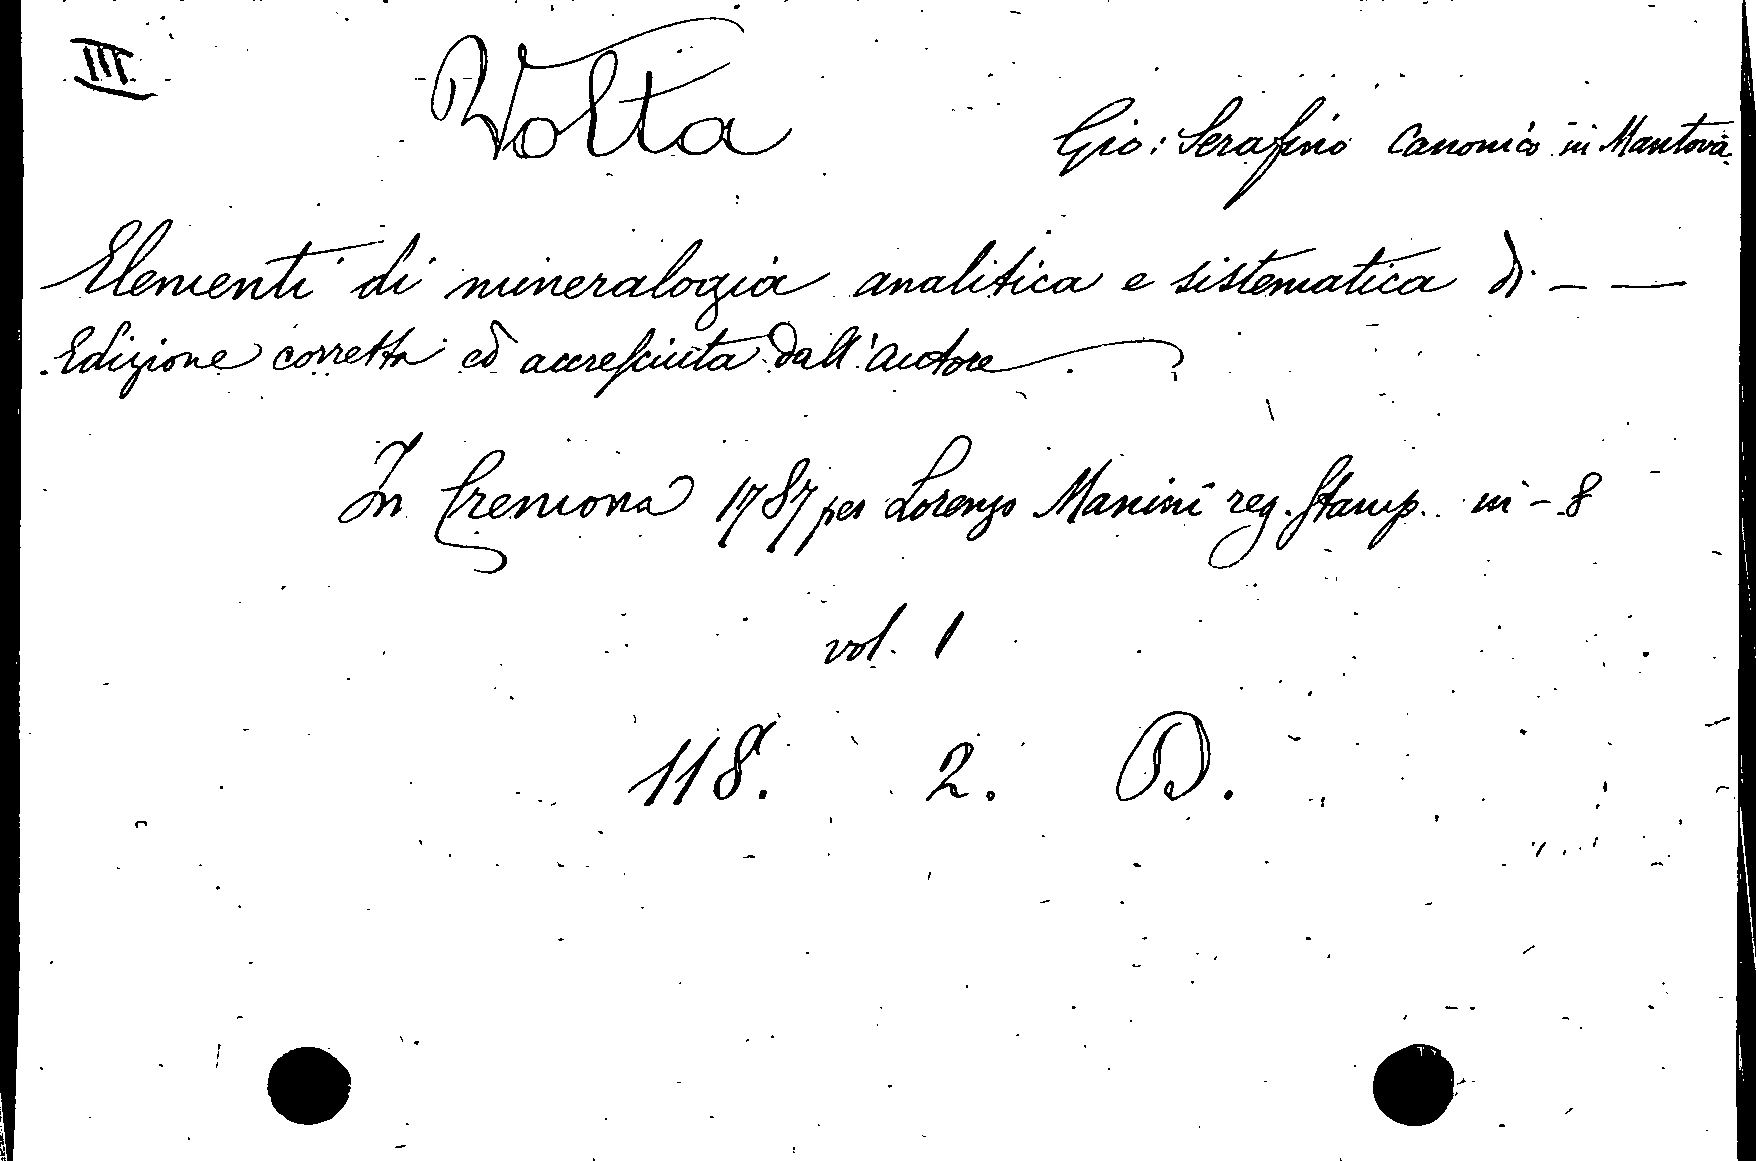 III
Volta
Gio: Serafino Canonico in Mantova
Elementi di mineralogia analitica e sistematica di — —
Edizione corretta ed accresciuta dall'autore
In Cremona 1787 per Lorenzo Manini reg. Stamp. in-8
vol. 1
118. 2. D.